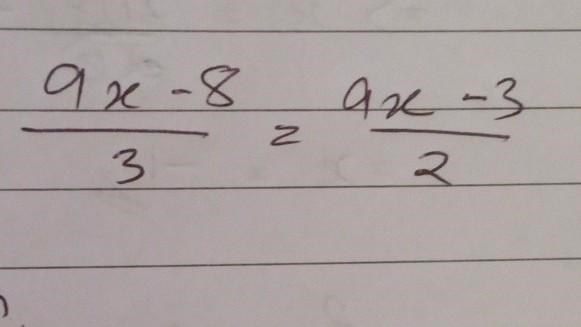 9x - 8 / 3 = 9x - 3 / 2